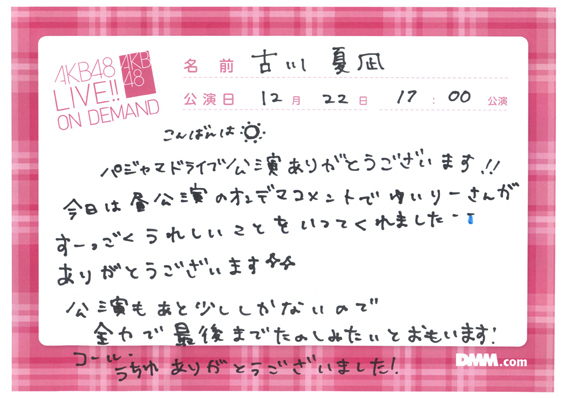 AKB48
LIVE!!
ON DEMAND
AKB
48
名前 古川 夏凪
公演日 12月 22日 17:00 公演
こんばんは
パジャマドライブ公演ありがとうございます!!
今日は昼公演のオンデマコメントでゆいりーさんが
すーっごくうれしいことをいってくれました
ありがとうございます
公演もあと少ししかないので
全力で最後までたのしみたいとおもいます!
コール・
うちゆ ありがとうございました!
DMM.com